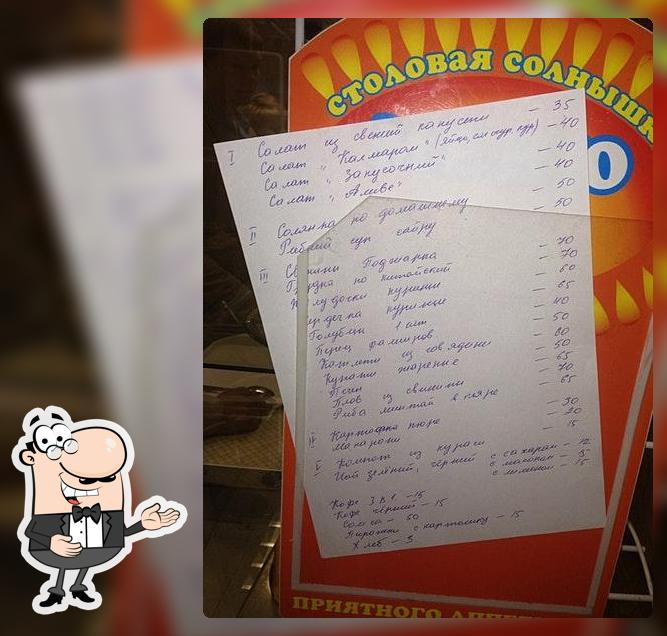 СТОЛОВАЯ СОЛНЫШК
I Салат из свежей капусты - 35
Салат "Кальмаром" (яйцо, кур) - 40
Салат "Закусочний" - 40
Салат "Оливе" - 40
II Солянка по домашнему - 50
Рибний суп сайру - 50
III Свинини Поджарка - 70
Грудка по китайский - 70
Желудочки курици - 60
Сердечка курици - 65
Голубци 1 шт - 40
Перец фаширов - 50
Котлети из говядини - 60
Купати жарение - 50
Печи - 65
Плов из свинини - 70
Риба минтай в кляре - 65
IV Картофка пюре - 30
Макарони - 20
V Компот из кураги - 15
Чай зелёний, черний с сахаром - 12
с молоком - 15
с лимоном - 15
Кофе 3 в 1 - 15
Кофе черний - 15
Самса - 50
Пирожки с картошку - 15
Хлеб - 3
ПРИЯТНОГО АППЕТ